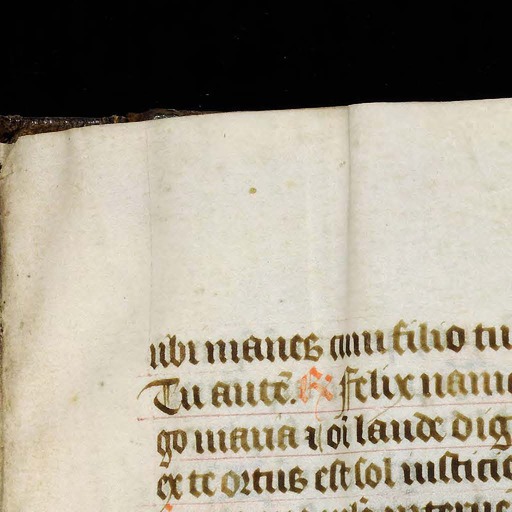 ubi manes cum filio tu
Tu autē. R: Felix nam
go maria ⁊ oī laude dig
ex te ortus est sol iusticie